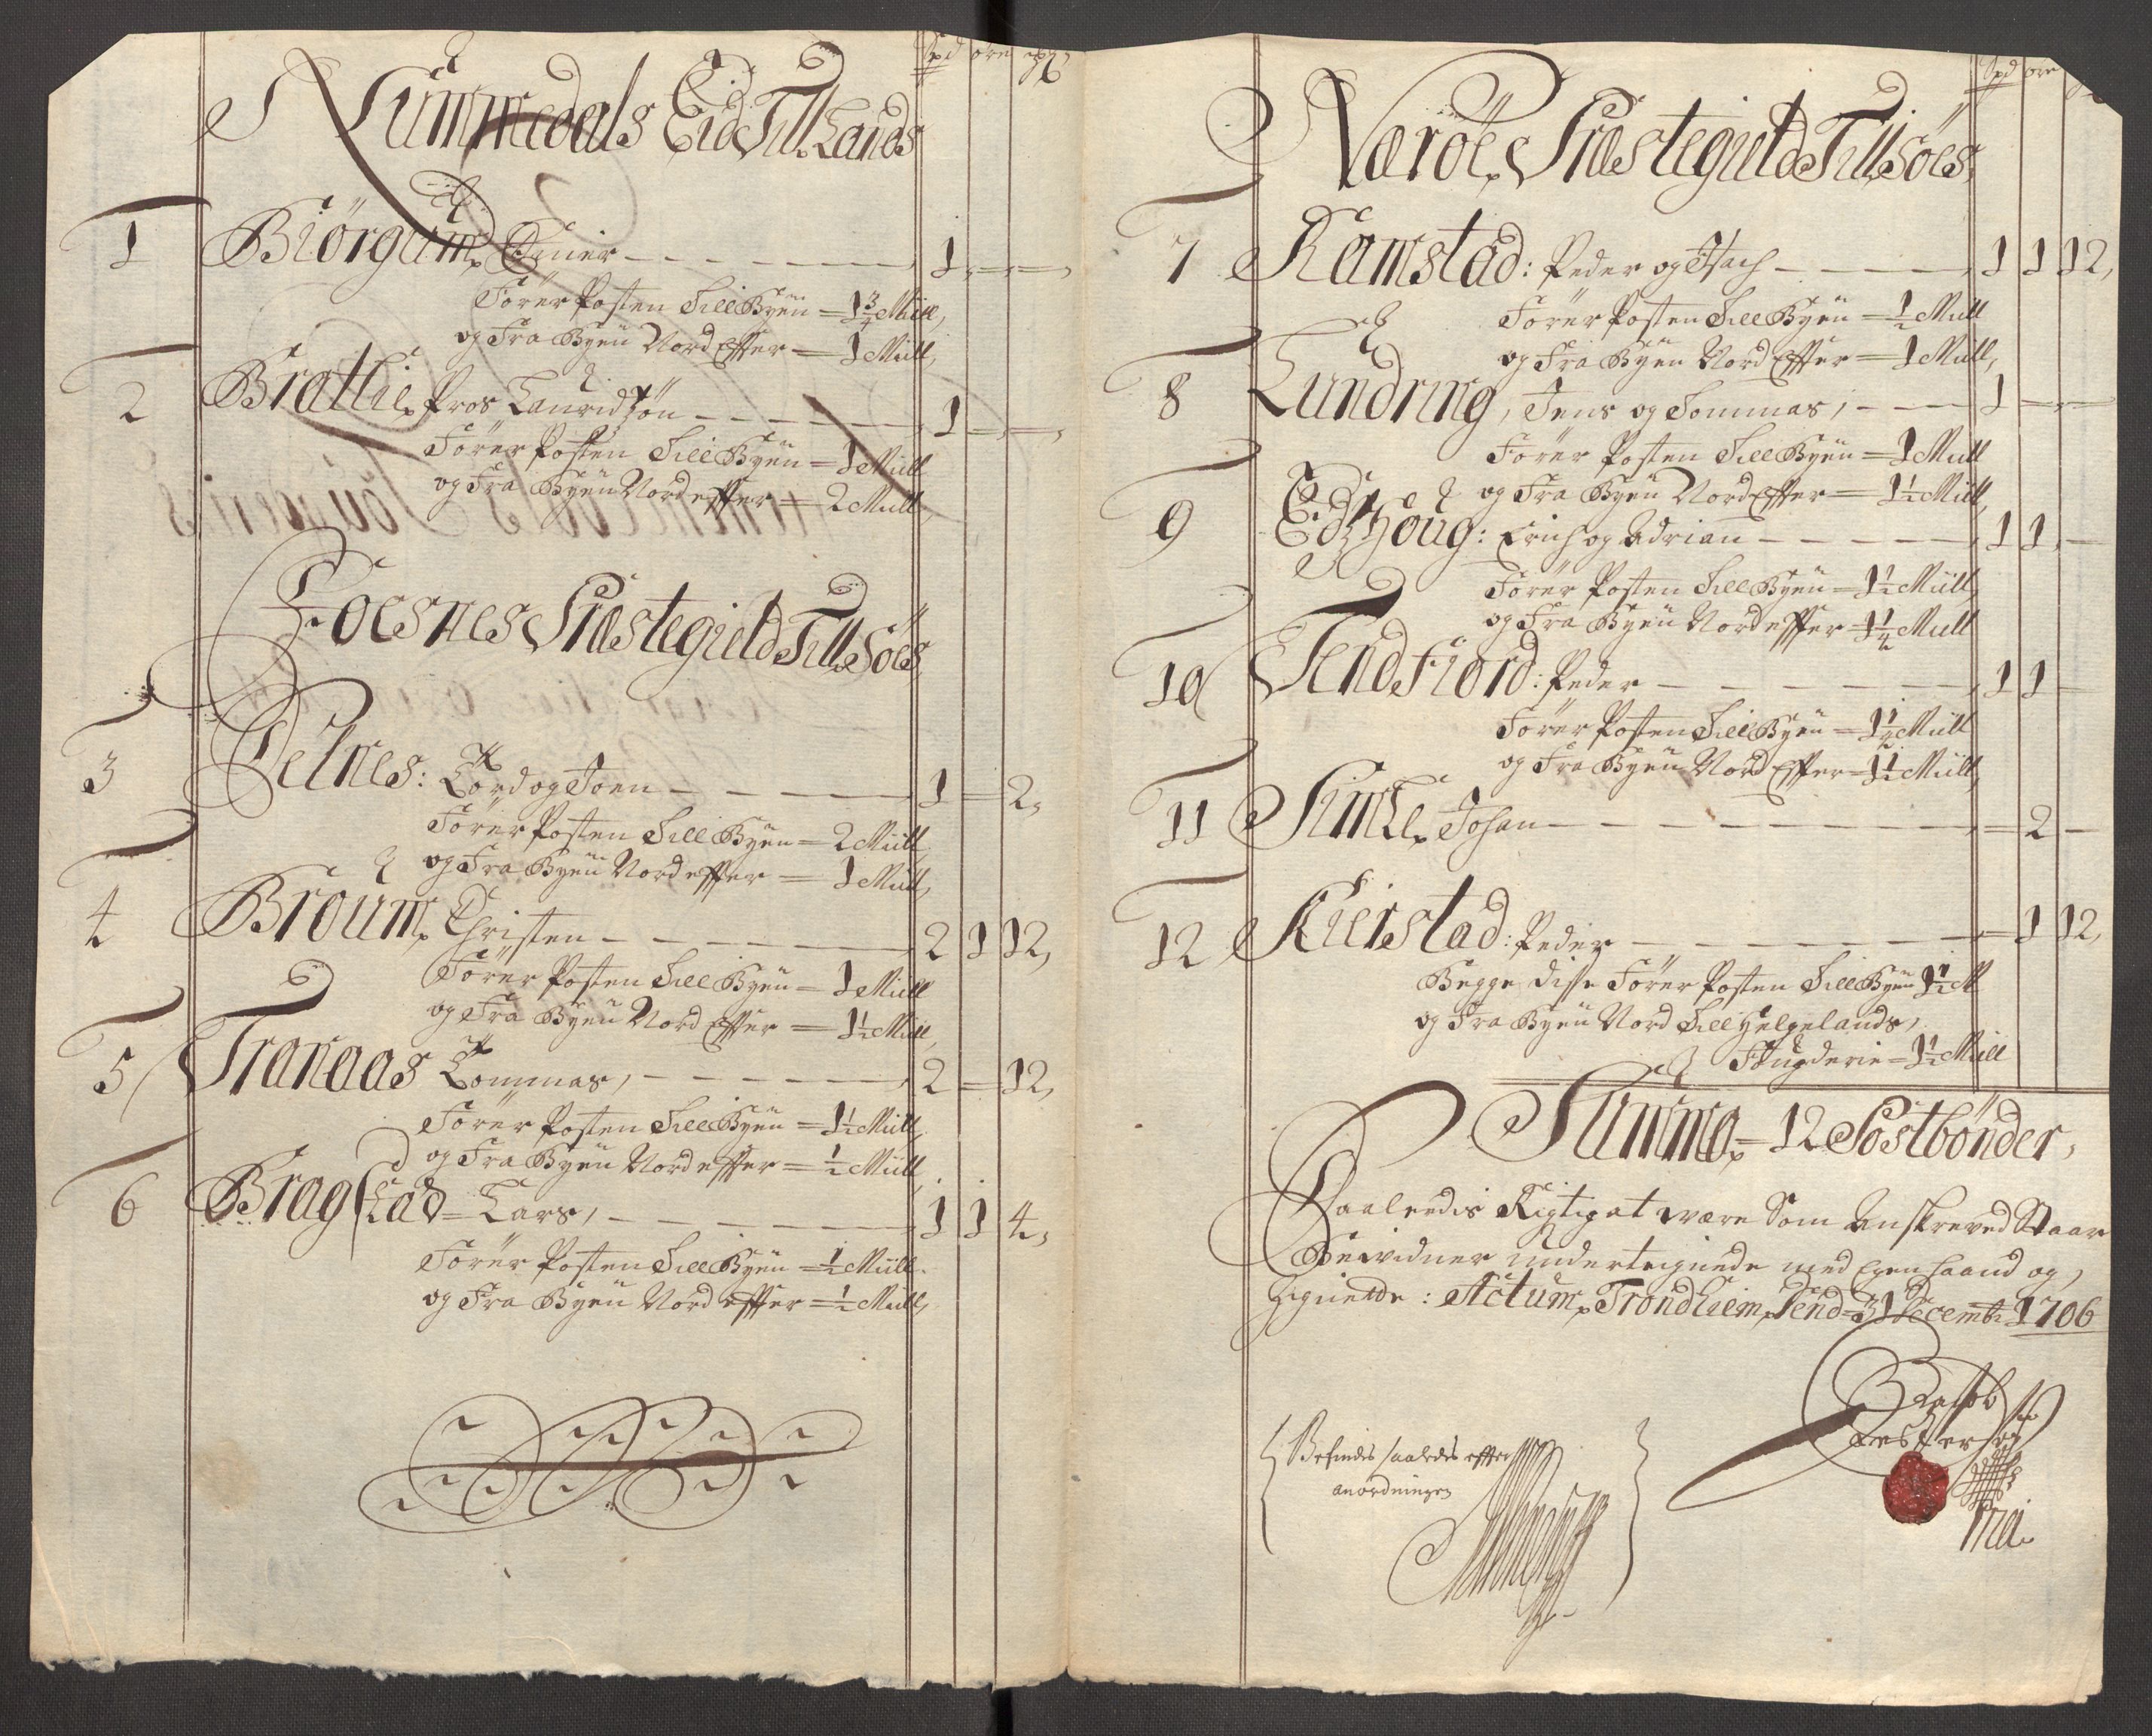 Spd ore
Nummedals Eid Till Lands
1 Biörgum, - - - 1 - -
Förer Posten Till Byen = 1 3/4 Miill,
og Fra Byen Nord Effter = 1 Miill,
2 Brattli, Lauridzön - - - 1 - -
Förer Posten Till Byen = 1 Miill
og Fra Byen Nord effter = 2 Miill,
Foesnes Præstegield Till Söes
3 Seines: og Joen - - - 1 - 2,
Förer Posten Till Byen = 2 Miill
og Fra Byen Nord effter = 1 Miill,
4 Broum, Christen - - - 2 1 12,
Förer Posten Till Byen = 1 Miill
og Fra Byen Nord Effter = 1 1/2 Miill,
5 Tranaas Tommas, - - - 2 - 12,
Förer Posten Till Byen = 1 1/2 Miill,
og Fra Byen Nord effter = 1/2 Miill,
6 Bragstad = Lars, - - - 1 1 4,
Förer Posten Till Byen = 1/2 Miill.
og Fra Byen Nord effter = 1/2 Miill,
Spd ore
Næröe Præstegield Till Söes,
7 Ramstad: Peder og Isach - - - 1 1 12,
Förer Posten Till Byen = 1/2 Miill
og Fra Byen Nord Effter = 1 Miill,
8 Lundring, Jens og Tommas, - - - 1 - -
Förer Posten Till Byen = 1 Miill
og Fra Byen Nord Effter = 1 1/2 Miill,
9 Eidshoug: Erich og Adrian - - - 1 1 -
Förer Posten Till Byen = 1 1/2 Miill,
og Fra Byen Nord effter = 1 1/4 Miill
10 Tendfiord: Peder - - - 1 1 -
Förer Posten Till Byen = 1 1/4 Miill
og Fra Byen Nord Effter = 1 1/2 Miill,
11 Simle, Johan - - - - 2 -
12 Kierstad: Peder - - - - 1 12,
Begge disse Förer Posten Till Byen 1 1/2 M
og Fra Byen Nord Till Helgelands,
Fougderie = 1 1/2 Miill
Summa = 12 Postbönder,
Saaledis Rigtigat være Som Anskreved Staar
Bevidner undertegnede med Egen haand og,
Zignette: Actum, Trondhiem, Dend 31 Decembr 1706
Befindes saaledes effter
anordningen